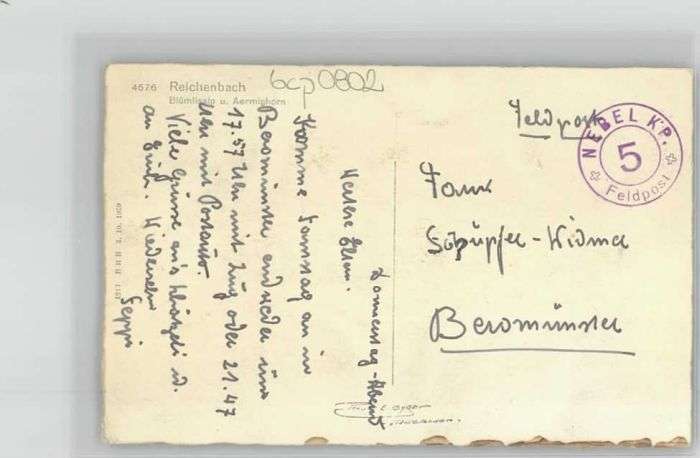 4676 Reichenbach
Blümlisalp u. Aermighorn
bcp0802
Feldpost
NEBEL KP.
5
Feldpost
Donnerstag-Abend
Komme Samstag an in
Beromünster entweder um
17.57 Uhr mit Zug oder 21.47
Uhr mit Postauto.
Viele Grüsse an's
an Euch. Wiedersehn
Seppi
Schüpfer-Widmer
Beromünster